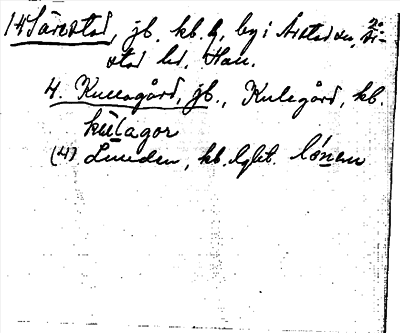 14 Särestad, jb. kb. h, by i Årstad sn, År-
stad hd, Hall.
4. Kullagård, jb., Kulegård, kb.
kùlagor
(4) Lunden, kb. lght. lónen